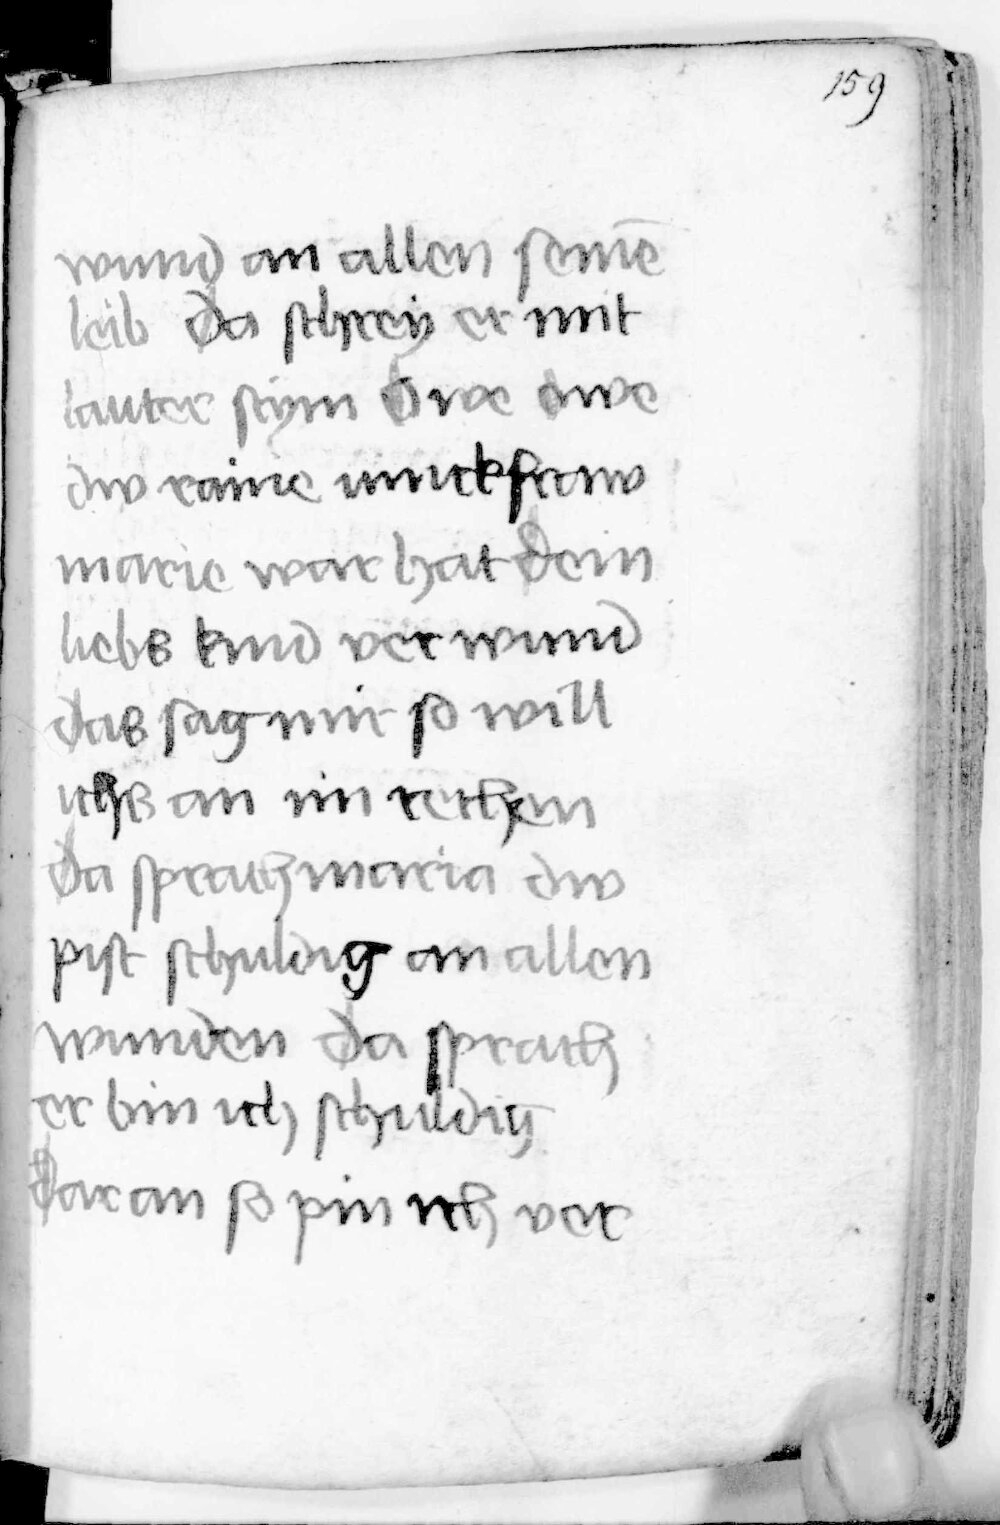 159
wund an allen seinē
leib da schrey er mit
lauter stym O we o we
dw raine iunckfraw
marie war hat dein
liebs kind ver wund
das sag mir so will
ichs an im rechen
da sprach maria dw
pist schuldig an allen
wunden da sprach
er bin ich schuldig
dar an so pin ich ver